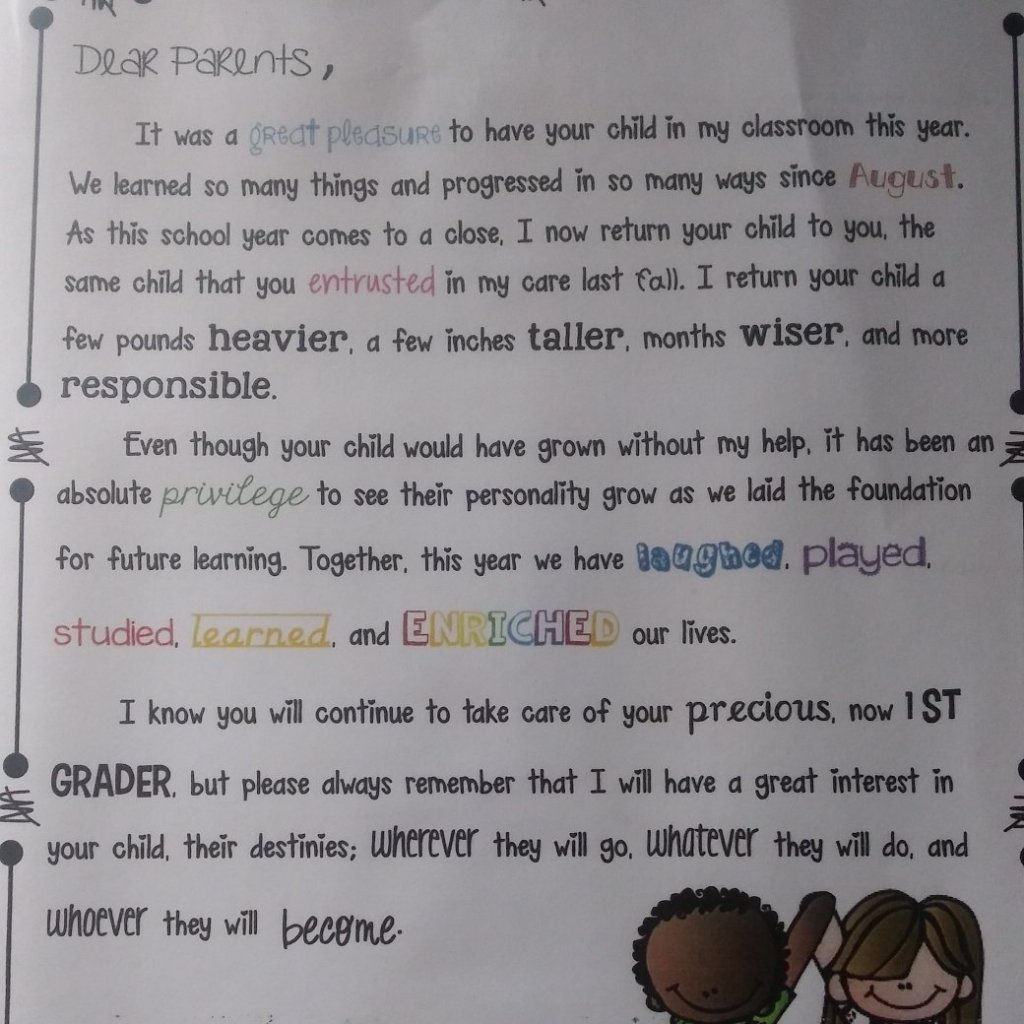 Dear Parents,
It was a great pleasure to have your child in my classroom this year.
We learned so many things and progressed in so many ways since August.
As this school year comes to a close, I now return your child to you, the
same child that you entrusted in my care last fall. I return your child a
few pounds heavier, a few inches taller, months wiser, and more
responsible.
Even though your child would have grown without my help, it has been an
absolute privilege to see their personality grow as we laid the foundation
for future learning. Together, this year we have laughed, played,
studied, learned, and ENRICHED our lives.
I know you will continue to take care of your precious, now 1ST
GRADER, but please always remember that I will have a great interest in
your child, their destinies; wherever they will go, whatever they will do, and
whoever they will become.